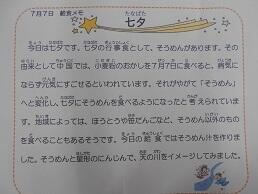 7月7日 給食メモ
七夕
今日は七夕です。七夕の行事食として、そうめんがあります。その
由来として中国では、小麦粉のおかしを7月7日に食べると、病気に
ならず元気にすごせるといわれています。それがやがて「そうめん」
へと変化し、七夕にそうめんを食べるようになったと考えられていま
す。地域によっては、ほうとうや笹だんごなど、そうめん以外のもの
を食べることもあるそうです。今日の給食ではそうめん汁を作りま
した。そうめんと星形のにんじんで、天の川をイメージしてみました。